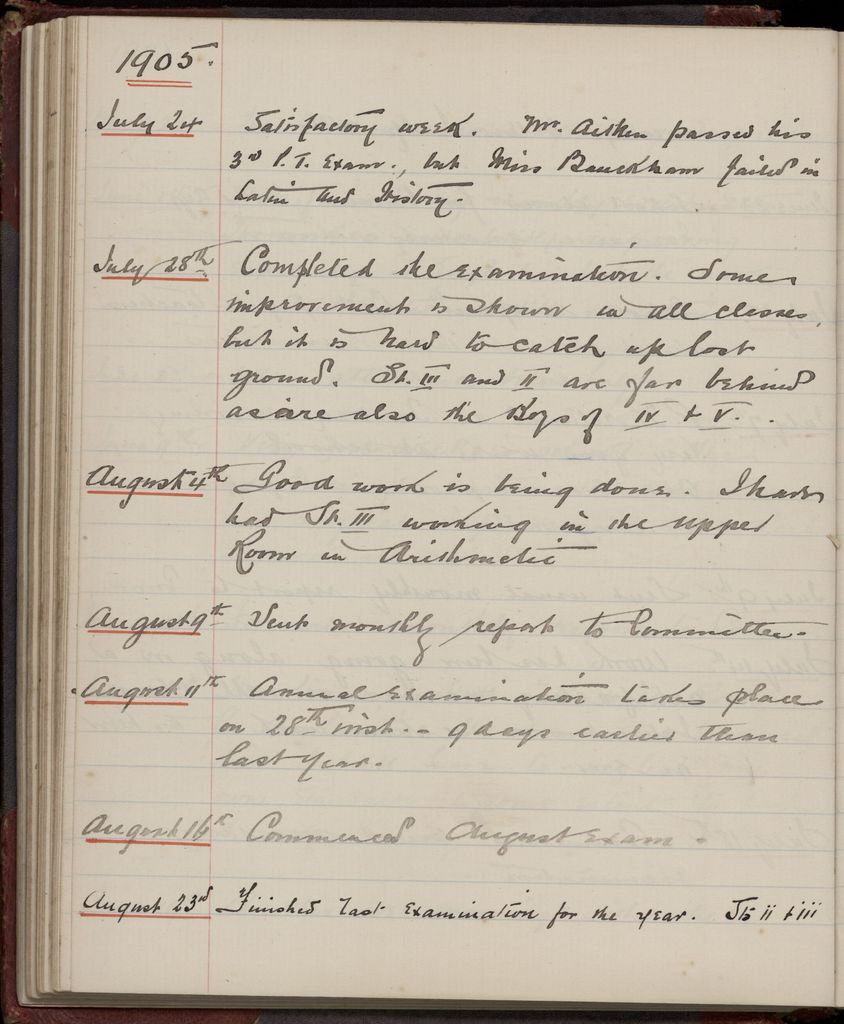 1905.
July 24 Satisfactory week. Mr. Aitken passed his
3rd P.T. Exam., but Miss Bauckham failed in
Latin and History.
July 28th Completed the examination. Some
improvement is shown in all classes,
but it is hard to catch up lost
ground. St. III and II are far behind
as are also the Boys of IV & V.
August 4th Good work is being done. I have
had St. III working in the upper
Room in Arithmetic
August 9th Sent monthly report to Committee.
August 11th Annual Examination takes place
on 28th inst. - 9 days earlier than
last year.
August 16th Commenced August Exam.
August 23rd Finished last examination for the year. Sts ii & iii